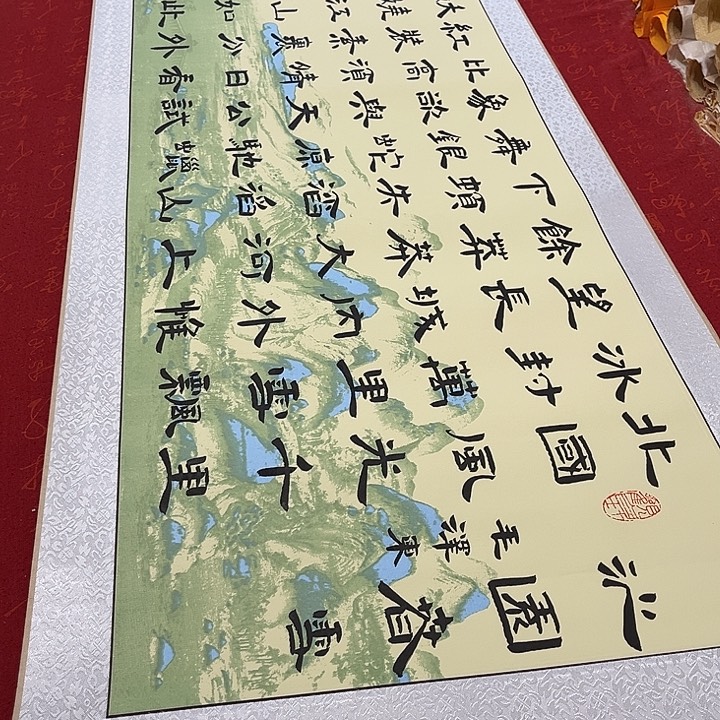 沁園春雪
毛澤東
北國風光千里
冰封萬里雪飄
望長城內外惟
餘莽莽大河上
下頓失滔滔山
舞銀蛇原馳蠟
象欲與天公試
比高須晴日看
紅裝素裹分外
嬈江山如此